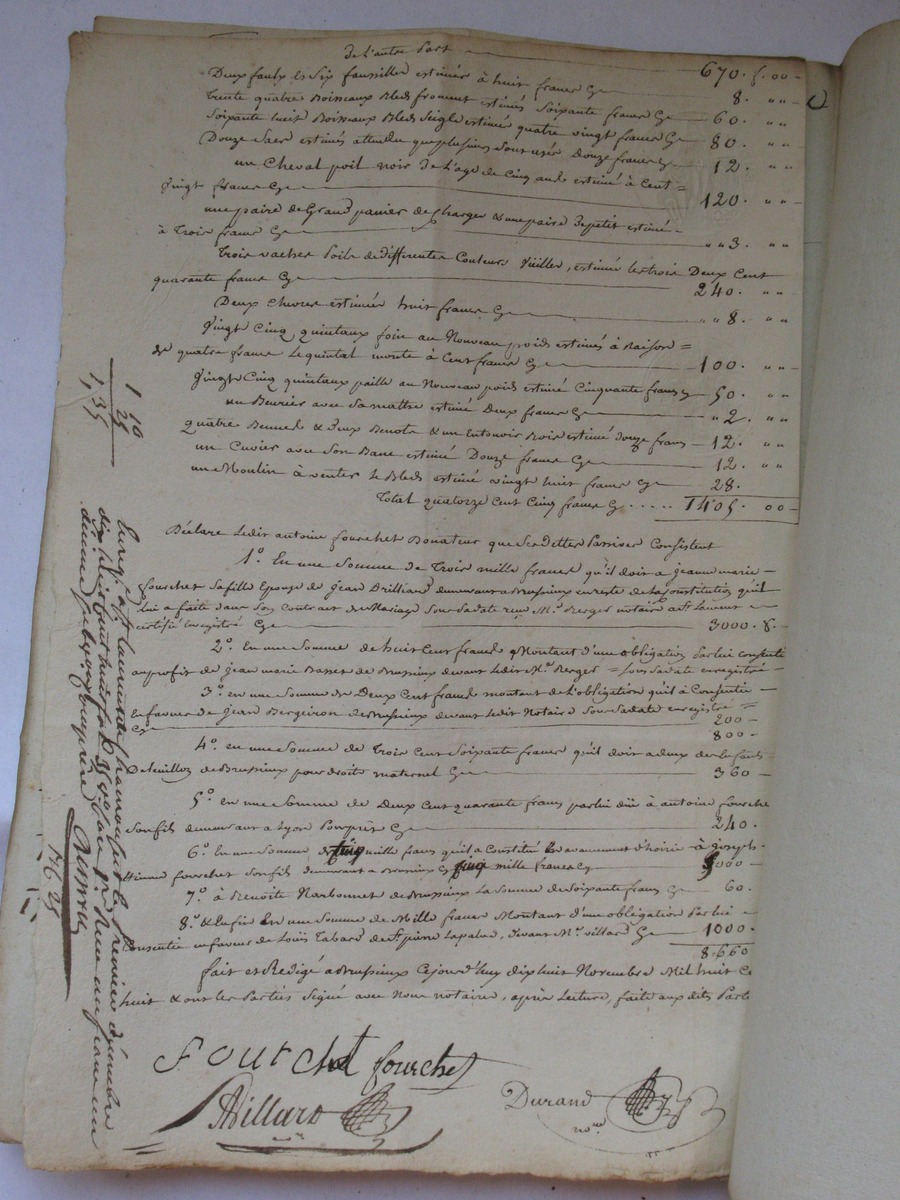 de l'autre Part 670. f. 00
Deux faulx et Six faussilles estimées à huit francs Cy 8. " "
Trente quatre Boisseaux Bleds froment estimés Soixante francs Cy 60. " "
Soixante huit Boisseaux Bleds Seigle estimé quatre vingt francs Cy 80. " "
Douze Sacs estimés attendu que plusieurs Sont usés Douze francs Cy 12. " "
un Cheval poil noir de L'age de Cinq ands estimé à Cent =
Vingt francs Cy 120. " "
une paire de Grand panier de Charger & une paire de petit estimé
à Trois francs Cy " " 3. " "
Trois vaches Poils de differentes Couleurs Vieilles, estimée les trois Deux Cent
quarante francs Cy 240. " "
Deux Chevres estimées huit francs Cy " " 8. " "
Vingt Cinq quintaux foin au Nouveau poids estimés à Raison =
de quatre francs Le quintal monte à Cent francs Cy 100. " "
Vingt Cinq quintaux paille au Nouveau poid estimé Cinquante francs 50. " "
un Beurier avec Sa estimé Deux francs Cy " 2. " "
quatre Bennes & deux Benots & un Entonoir Bois estimé douze francs 12. " "
un Cuvier avec Son Banc estimé Douze francs Cy 12. " "
un Moulin à venter le Bleds estimé vingt huit francs Cy 28.
Total quatorze Cent Cinq francs Cy ..... 1405. 00
Déclare Ledit antoine fourchet Donateur que Ses Dettes Passives Consistent
1°. En une Somme de Trois mille francs qu'il doit a jeanne marie
fourchet Sa fille Epouse de jean Brilliand demeurant a Brussieux en reste de La Constitution qu'il
lui a faite dans Son Contract de Mariage Sous Sa date reçu Me. Berger notaire a St. Laurent
certifié enregistré Cy 3000. 8.
2°. en une Somme de huit Cent francs Montant d'une obligation Par lui Consentie
au profit de jean marie Basset de Brussieux devant Ledit Me. Berger = Sous Sa date enregistré
3°. en une Somme de Deux Cent francs montant de L'obligation qu'il a Consentie
En faveur de jean Bergeiron de Brussieux devant Ledit Notaire Sous Sa date enregistré =
Cy 200
800
4°. en une Somme de Trois Cent Soixante francs qu'il doit a deux de
de Brussieux pour droits maternel Cy 360
5°. en une Somme de Deux Cent quarante francs par lui dû à antoine fourchet
Son fils demeurant a Lyon Cy 240.
6°. En une Somme de mille francs qu'il a Constitué En avancement d'hoirie à joseph
Etienne fourchet Son fils demeurant a Brussieux Cy mille francs Cy 3000
7°. à Benoite Narbonnet de Brussieux La Somme de Soixante francs Cy 60.
8°. & Enfin En une Somme de Mille francs Montant d'une obligation Par lui
Consentie en faveur de Loüis Tabard de St. pierre Lapalud, devant Me. villard Cy 1000
8.660
fait et Redigé a Brussieux Cejourd'huy dix huit Novembre Mil huit C
huit & ont les Parties Signé avec Nous notaires, après Lecture, faite aux dits Part
Fourchet fourchet
Villard
Durand
nore
1 10
25
1,35
Enreg. à St. Laurent de Chamousset le premier décembre
dix huit cent huit fol. Reçu un franc un
decime
176.25